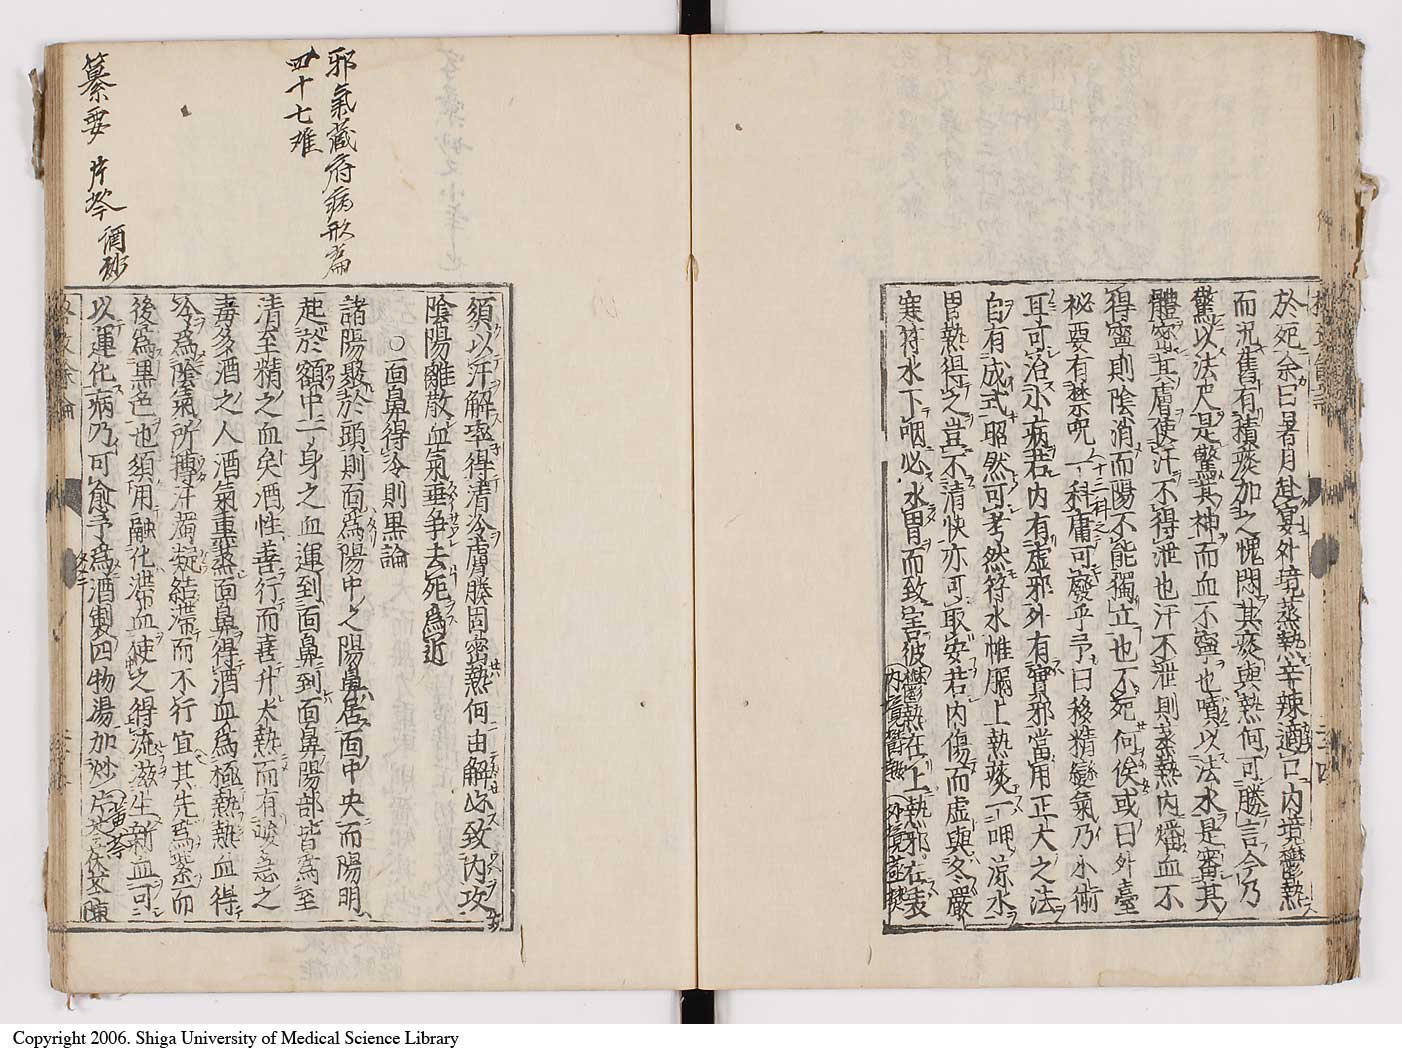 於死余曰暑月赴宴外境蒸熱辛辣適口内境鬱熱
而況舊有積痰加之愧悶其痰與熱何可勝言今乃
驚以法尺是驚其神而血不寧也噴以法水是審其
體密其膚使汗不得泄也汗不泄則蒸熱内燔血不
得寧則陰消而陽不能獨立也不死何俟或曰外臺
秘要有禁呪一科庸可廢乎予曰移精變氣乃小術
耳可治小病若内有虚邪外有實邪當用正大之法
自有成式昭然可考然符水惟膈上熱痰一呷涼水
胃熱得之豈不清快亦可取安若内傷而虚與冬嚴
寒符水下咽必氷胃而致害彼鬱熱在上熱邪在表
須以汗解率得清冷膚腠固密熱何由解必致内攻
陰陽離散血氣乖争去死為近
○面鼻得冷則黒論
諸陽聚於頭則面為陽中之陽鼻居面中央而陽明
起於額中一身之血運到面鼻到面鼻陽部皆為至
清至精之血矣酒性善行而喜升大熱而有峻急之
毒多酒之人酒氣熏蒸面鼻得酒血為極熱熱血得
冷為陰氣所搏汗濁凝結滯而不行宜其先為紫而
後為黒色也須用融化滯血使之得流滋生新血可
以運化病乃可愈予為酒製四物湯加炒片茯苓陳
邪氣蔵府病形篇
四十七难
纂要 片芩 酒炒
Copyright 2006. Shiga University of Medical Science Library